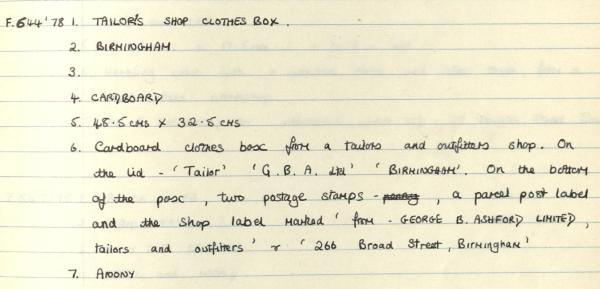 F.644'78 1. TAILOR'S SHOP CLOTHES BOX.
2. BIRMINGHAM
3.
4. CARDBOARD
5. 48.5 CMS X 32.5 CMS
6. Cardboard clothes box from a tailors and outfitters shop. On
the lid - 'Tailor' 'G.B.A. Ltd' 'BIRMINGHAM'. On the bottom
of the box, two postage stamps - , a parcel post label
and the shop label marked 'from - GEORGE B. ASHFORD LIMITED,
tailors and outfitters' r '266 Broad Street, BIRMINGHAM'
7.